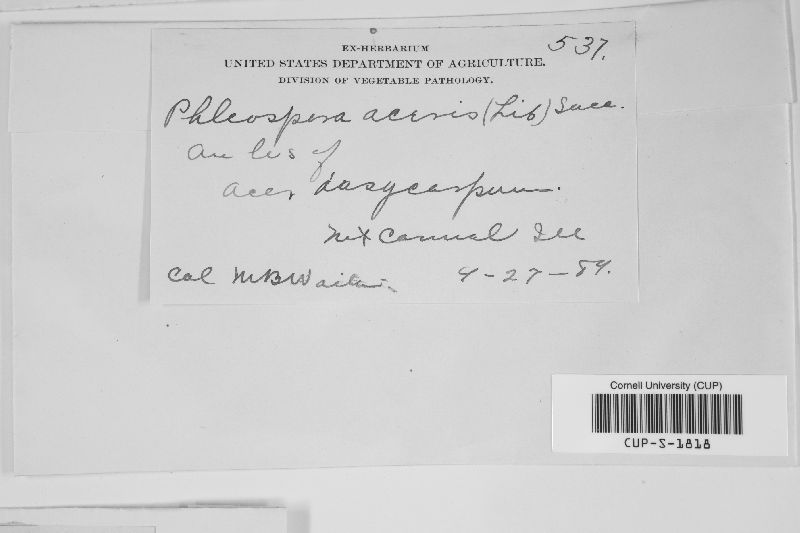 EX-HERBARIUM
537.
UNITED STATES DEPARTMENT OF AGRICULTURE.
DIVISION OF VEGETABLE PATHOLOGY.
Phleospora aceris (Lib) Sacc.
on lvs of
acer dasycarpum.
Mt Carmel Ill
Col MBWaite. 4-27-89.
Cornell University (CUP)
CUP-S-1818